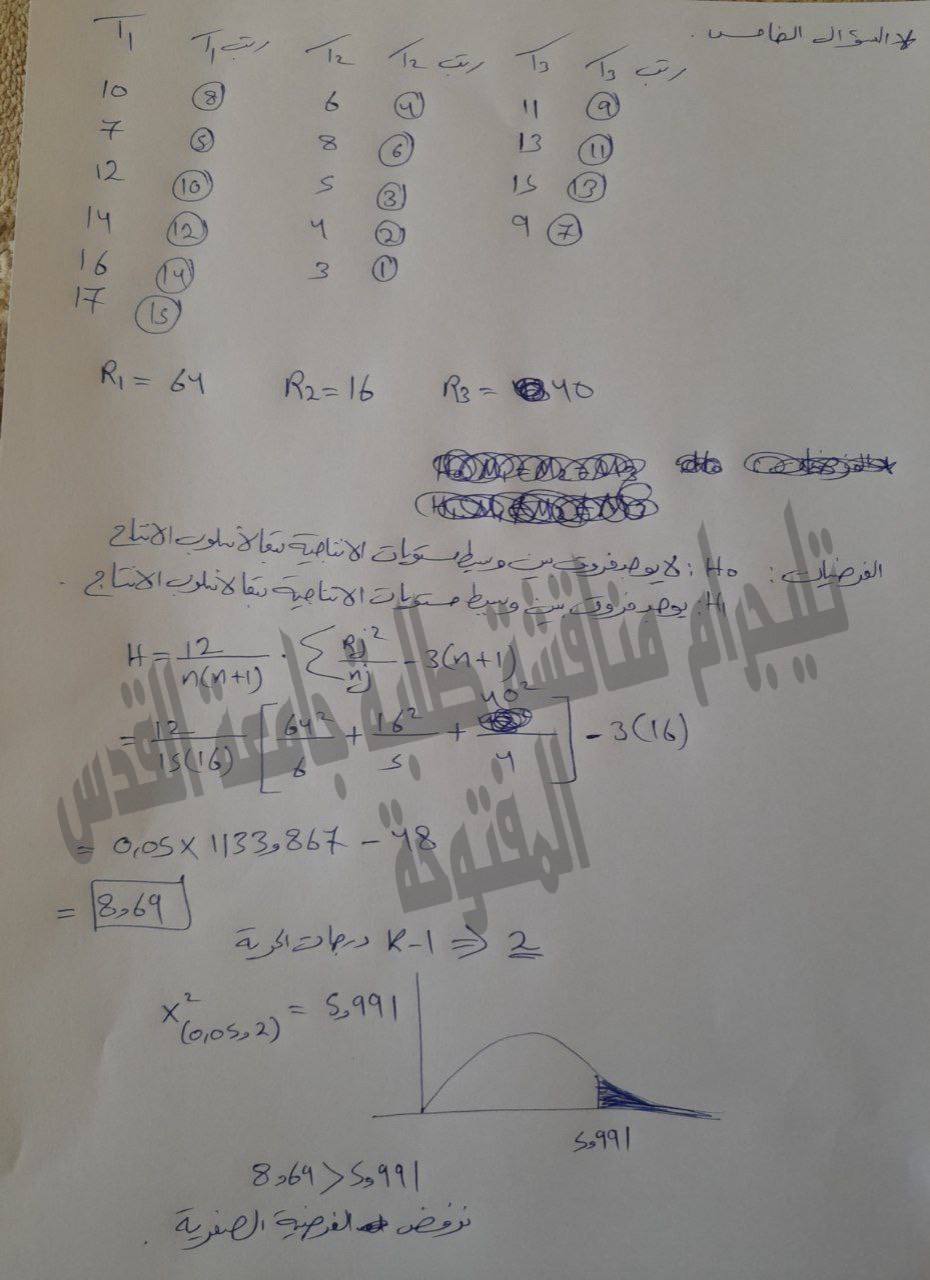 السؤال الخامس .
T1 رتب T1 T2 رتب T2 T3 رتب T3
10 8 6 4 11 9
7 5 8 6 13 11
12 10 5 3 15 13
14 12 4 2 9 7
16 14 3 1
17 15
R1 = 64 R2 = 16 R3 = 40
الفرضيات : H0 : لا يوجد فروق بين وسيط مستويات الانتاجية تبعا لأسلوب الانتاج
H1 : يوجد فروق بين وسيط مستويات الانتاجية تبعا لأسلوب الانتاج .
H = 12/n(n+1) · Σ Rj²/nj - 3(n+1)
= 12/15(16) [ 64²/6 + 16²/5 + 40²/4 ] - 3(16)
= 0,05 x 1133,867 - 48
= 8,69
درجات الحرية K-1 ⇒ 2
X²(0,05,2) = 5,991
5,991
8,69 > 5,991
نرفض الفرضية الصفرية .
تيليجرام مناقشة طلبة جامعة القدس
المفتوحة